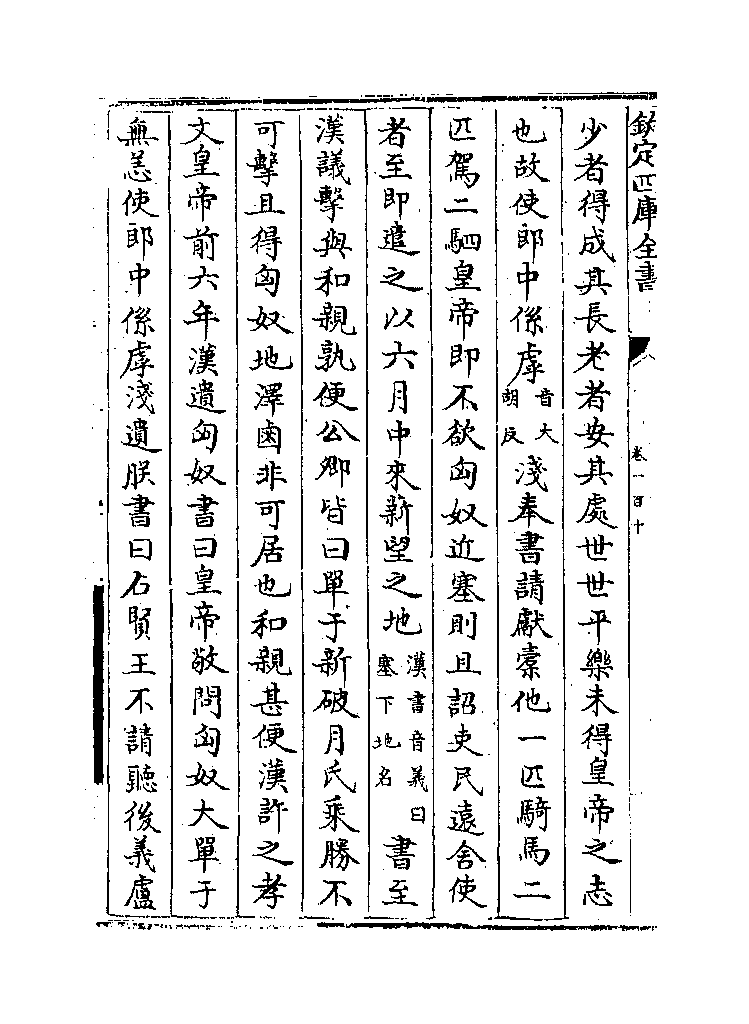 欽定四庫全書
卷一百十
少者得成其長老者安其處世世平樂未得皇帝之志
也故使郎中係雽音大胡反淺奉書請獻橐他一匹騎馬二
匹駕二駟皇帝即不欲匈奴近塞則且詔吏民遠舍使
者至即遣之以六月中來新望之地漢書音義曰塞下地名書至
漢議擊與和親孰便公卿皆曰單于新破月氏乘勝不
可擊且得匈奴地澤鹵非可居也和親甚便漢許之孝
文皇帝前六年漢遺匈奴書曰皇帝敬問匈奴大單于
無恙使郎中係雽淺遺朕書曰右賢王不請聽後義盧